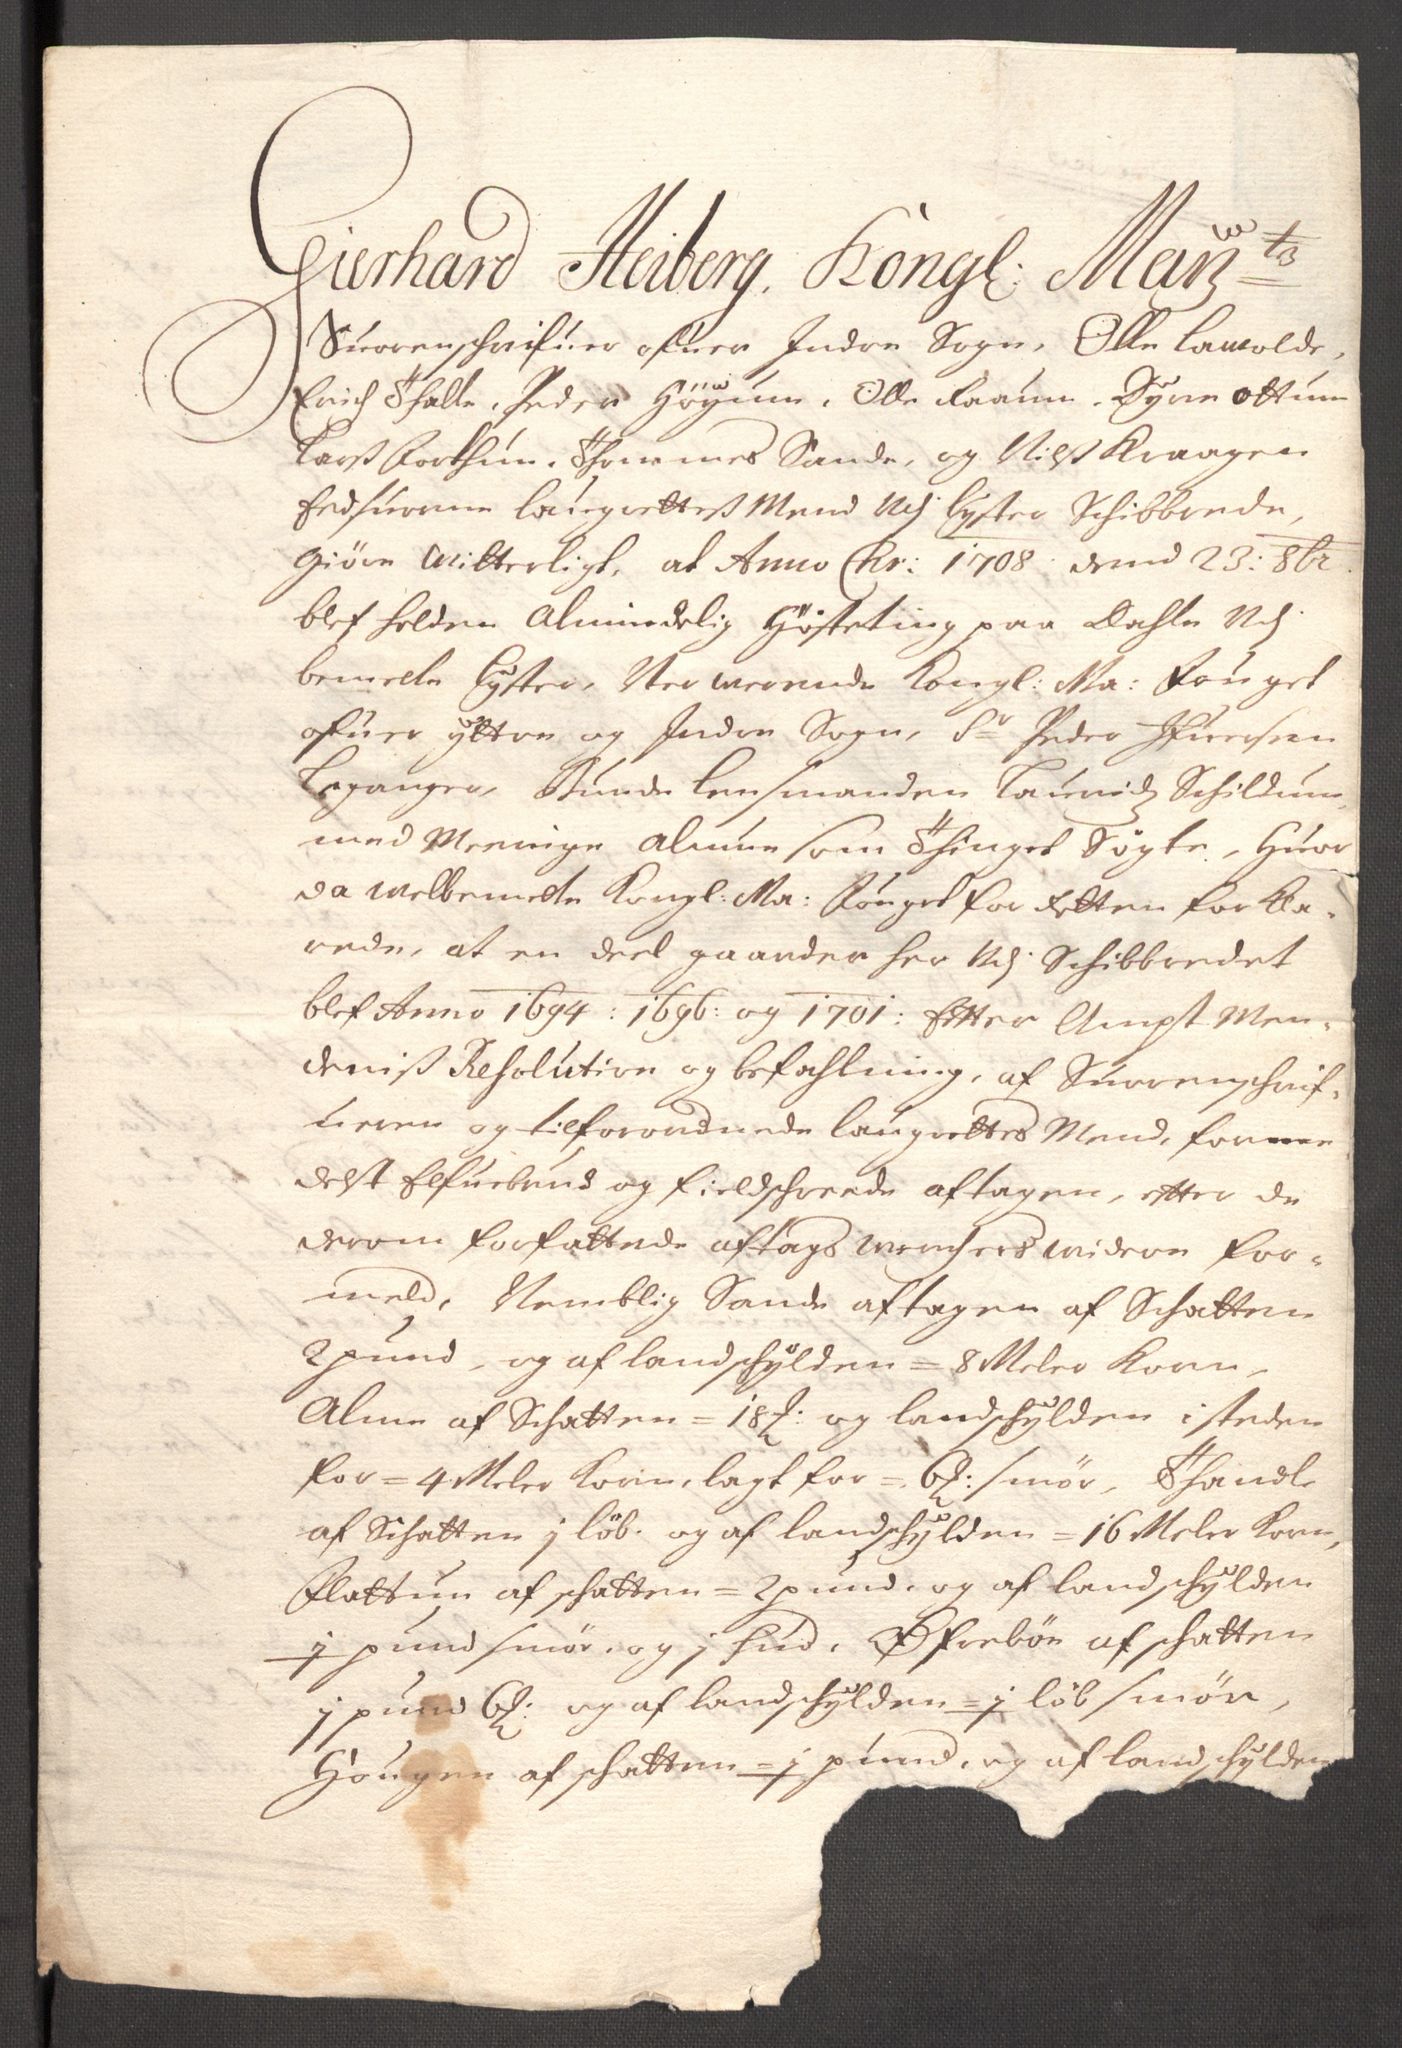 Gierhard Heiberg, Kongl: Mayts
Suorenschrifuer ofuer Indre Sogn, Olle Lauvolde,
Erich Thalle, Peder Höyum, Olle Raaum, Syver Ottum
Larss Forthun, Thommes Sande, og Nilss Kraagen
Edsuorne Laugrettess Mend Udj Lyster Schibbrede,
Giöre Witterligt, at Anno Chr: 1708 dend 23: 8br
blef holden Almindelig Hösteting paa Dahle Udj
bemelte Lyster, Nerwerende Kongl: Ma: Fouget
ofuer yttre og Indre Sogn, Sr Peder Ifuersen
Leganger, Bunde Lensmanden Lauridz Schildum,
med Meenige Almue som Thinget Sögte, Huor
da Welbemelte Kongl: Ma: Fouget for Retten for Kla-
rede, at en deel gaarder her Udj Schibbredet
blef Anno 1694: 1696: og 1701: Efter Ampt Men-
deniss Resolution og befahlning, af Suorenschrif-
ueren og tilforordnede Laugrettes Mend, forme
delst Elfuebrud og fieldschreede aftagen, efter de
derom forfattede aftags widere for-
meld, Nemblig Sande aftagen af Schatten
2 pund, og af landschylden = 8 Meler Korn,
Alme af Schatten = 18 ℔: og landschylden isteden
for = 4 Meler Korn, lagt for = 6 ℔: smör, Thandle
af Schatten j löb. og af landschylden = 16 Meler Korn,
Flattum af schatten = 2 pund. og af landschylden
j pund smör. og j hud. Öfreböe af schatten
j pund 6 ℔: og af landschylden = j löb smör,
Hougen af schatten = j pund. og af landschylden